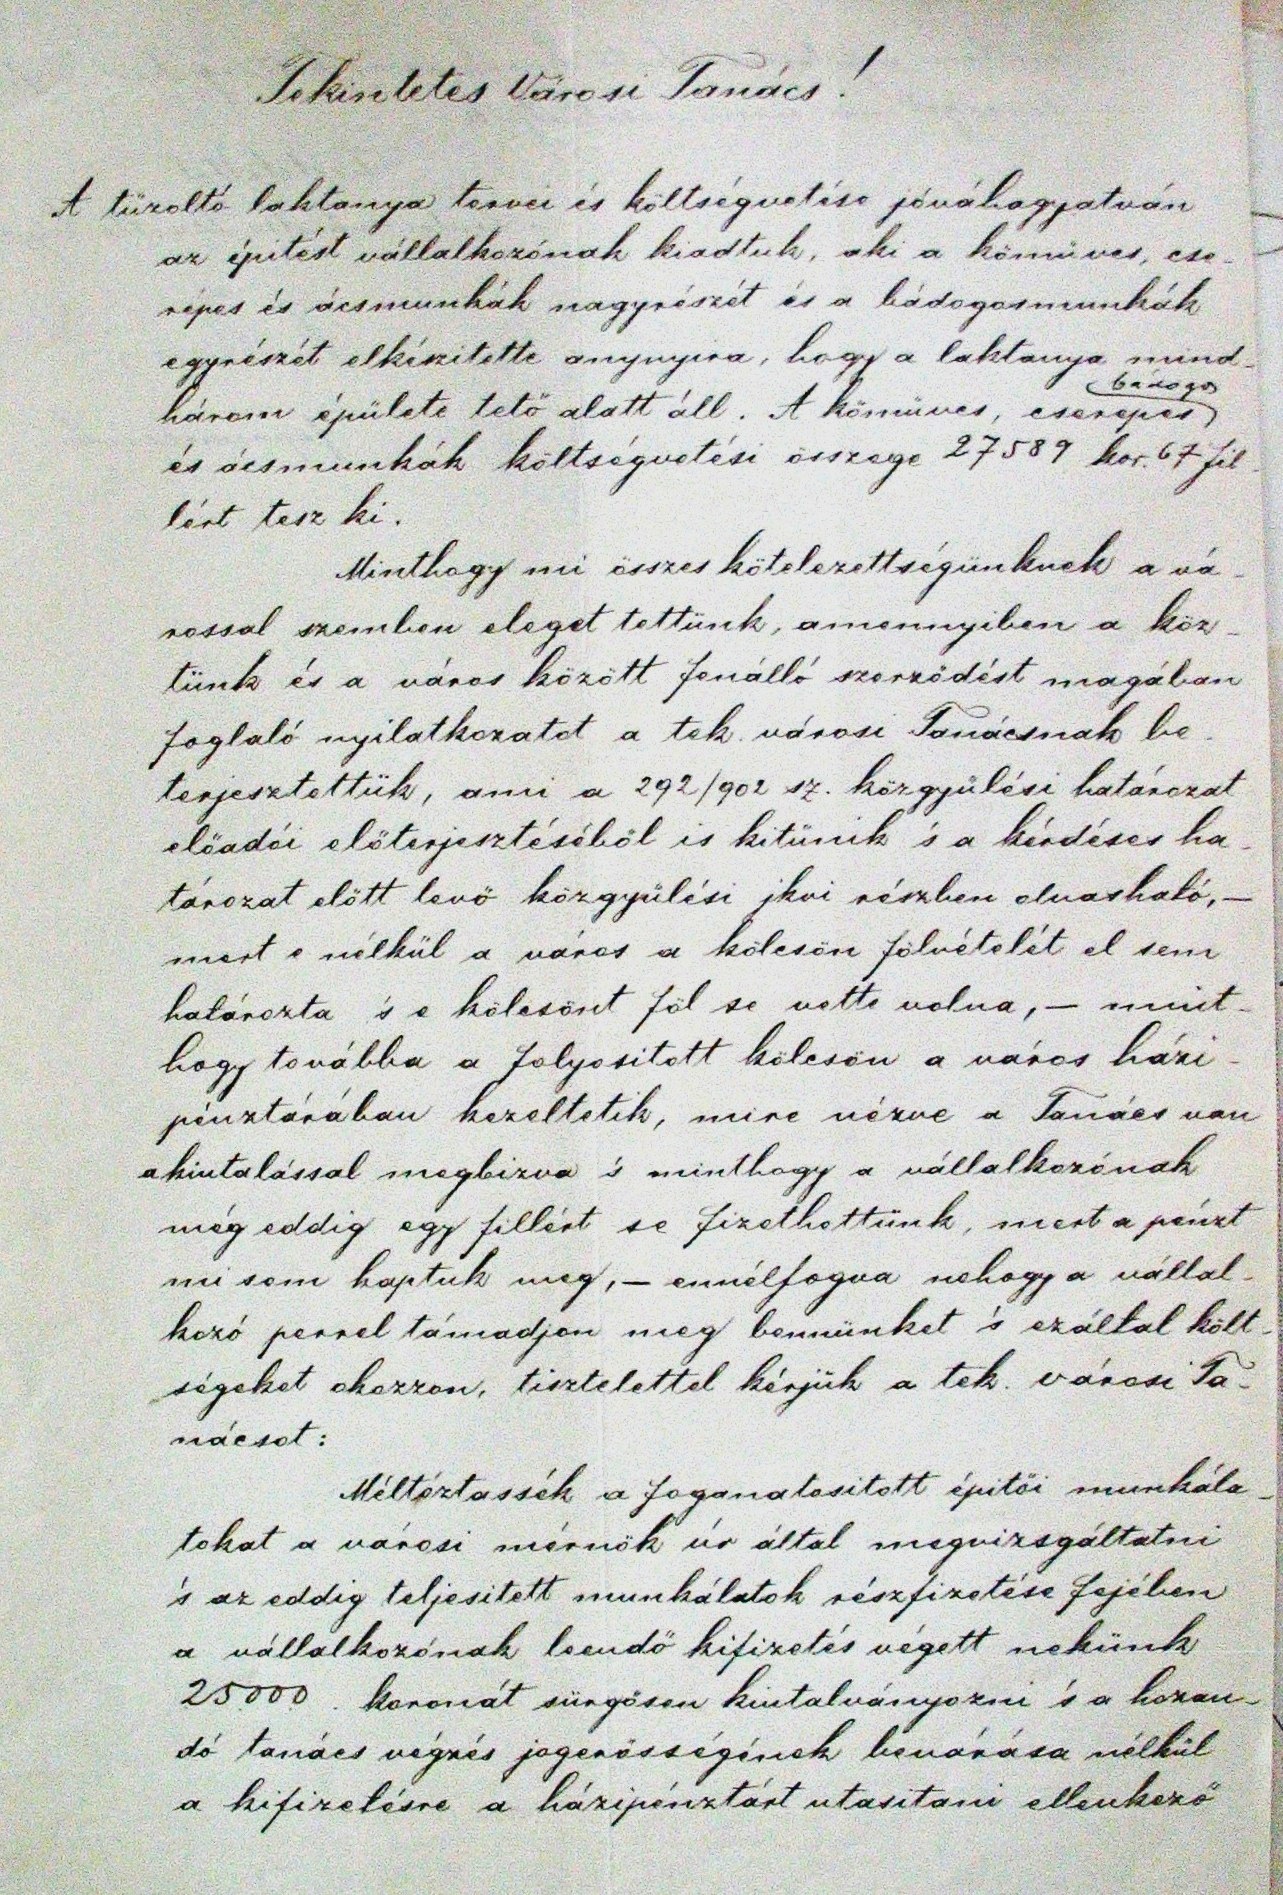 Tekintetes Városi Tanács!
A tüzoltó laktanya tervei és költségvetése jóváhagyatván
az épitést vállalkozónak kiadtuk, aki a kömüves, cse-
repes és ácsmunkák nagyrészét és a bádogosmunkák
egyrészét elkészitette anynyira, hogy a laktanya mind-
bádogo
három épülete tető alatt áll. A kömüves, cserepes
és ácsmunkák költségvetési összege 27589 kor. 67 fil-
lért tesz ki.
Minthogy mi összes kötelezettségünknek a vá-
rossal szemben eleget tettünk, amennyiben a köz-
tünk és a város között fenálló szerződést magában
foglaló nyilatkozatot a tek. városi Tanácsnak be-
terjesztettük, ami a 292/902 sz. közgyülési határozat
előadói előterjesztéséböl is kitünik s a kérdéses ha-
tározat előtt levő közgyülési jkvi részben olvasható, —
mert e nélkül a város a kölcsön fölvételét el sem
határozta s e kölcsönt föl se vette volna, — mint-
hogy továbba a folyositott kölcsön a város házi-
pénztárában kezeltetik, mire nézve a Tanács van
a kiutalással megbizva s minthogy a vállalkozónak
még eddig egy fillért se fizethettünk, mert a pénzt
mi sem kaptuk meg, — ennélfogva nehogy a vállal-
kozó perrel támadjon meg bennünket s ezáltal költ-
ségeket okozzon, tisztelettel kérjük a tek. városi Ta-
nácsot:
Méltóztassék a foganatositott épitői munkála-
tokat a városi mérnök úr által megvizsgáltatni
s az eddig teljesitett munkálatok részfizetése fejében
a vállalkozónak leendő kifizetés végett nekünk
25000 koronát sürgősen kiutalványozni s a hozan-
dó tanács végzés jogerősségének bevárása nélkül
a kifizetésre a házipénztárt utasitani ellenkező